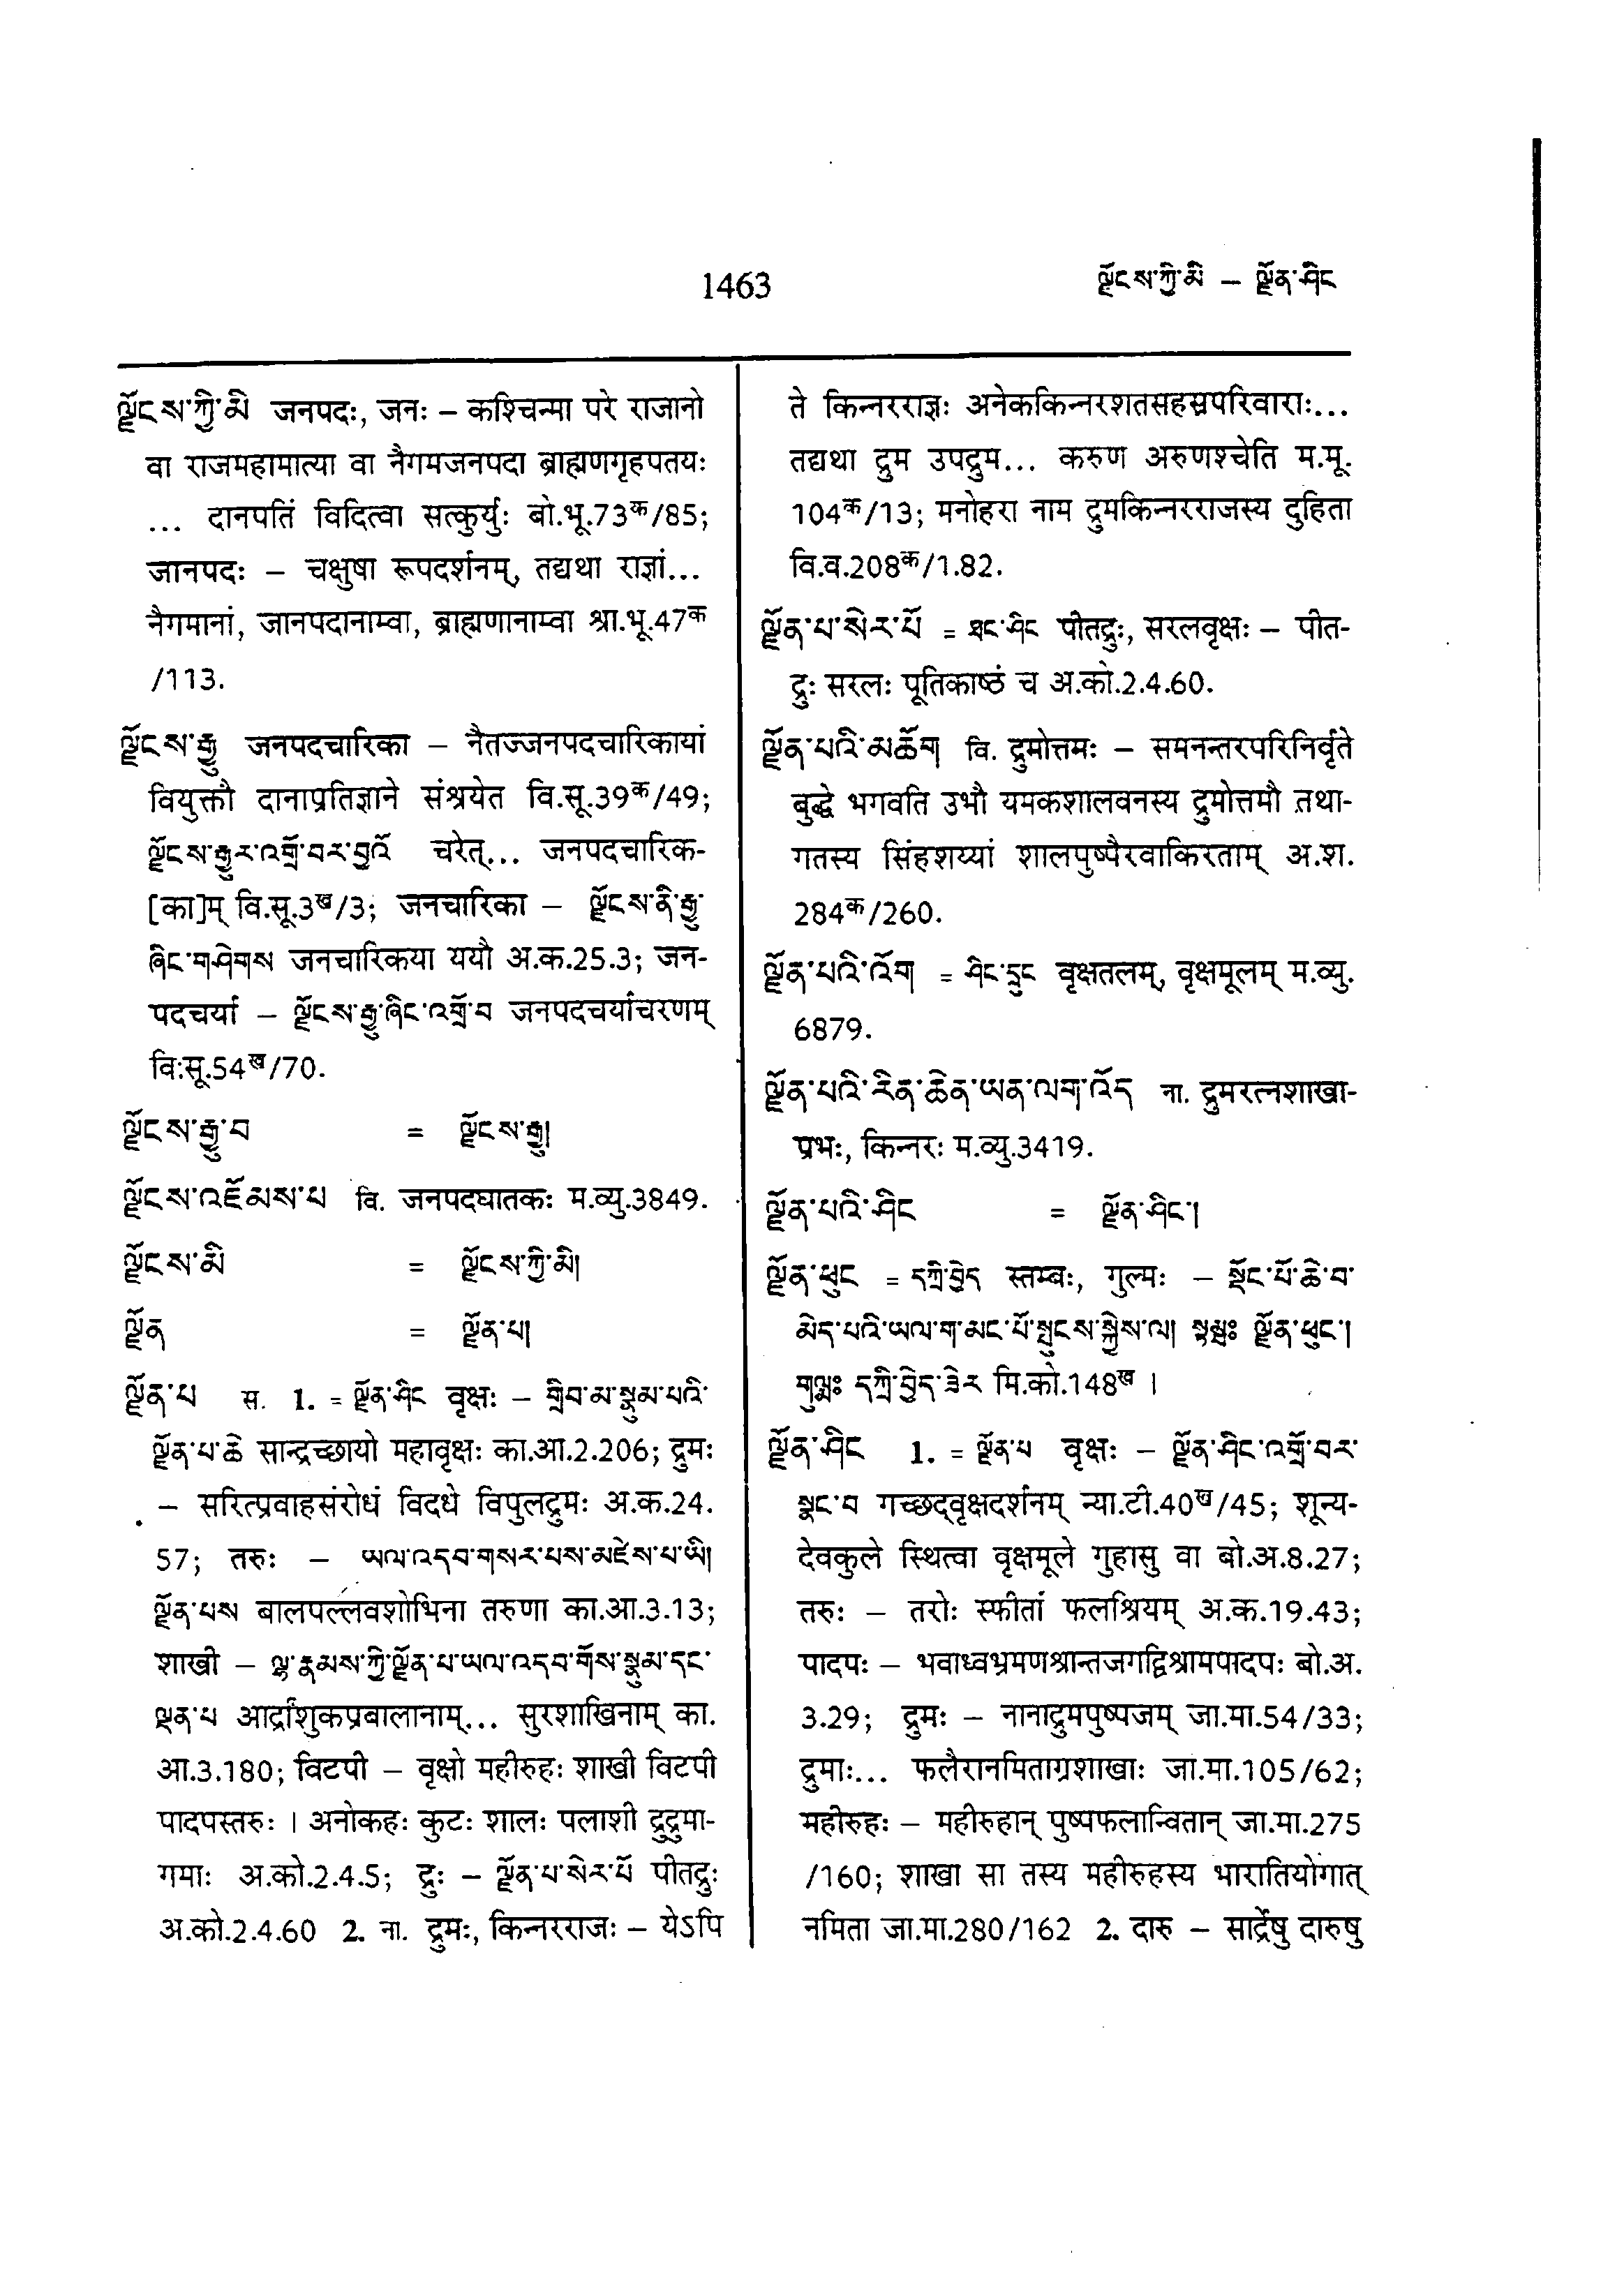 1463
ལྗོངས་ཀྱི་མི – ལྗོན་ཤིང
ལྗོངས་ཀྱི་མི जनपदः, जनः – कश्चिन्मा परे राजानो
वा राजमहामात्या वा नैगमजनपदा ब्राह्मणगृहपतयः
... दानपतिं विदित्वा सत्कुर्युः बो.भू.73क/85;
जानपदः – चक्षुषा रूपदर्शनम्, तद्यथा राज्ञां...
नैगमानां, जानपदानाम्वा, ब्राह्मणानाम्वा श्रा.भू.47क
/113.
ལྗོངས་རྒྱུ जनपदचारिका – नैतज्जनपदचारिकायां
वियुक्तौ दानाप्रतिज्ञाने संश्रयेत वि.सू.39क/49;
ལྗོངས་རྒྱུར་འགྲོ་བར་བྱའོ चरेत्... जनपदचारिक-
[का]म् वि.सू.3ख/3; जनचारिका – ལྗོངས་ནི་རྒྱུ་
ཞིང་གཤེགས जनचारिकया ययौ अ.क.25.3; जन-
पदचर्या – ལྗོངས་རྒྱུ་ཞིང་འགྲོ་བ जनपदचर्याचरणम्
वि:सू.54ख/70.
ལྗོངས་རྒྱུ་བ = ལྗོངས་རྒྱུ།
ལྗོངས་འཇོམས་པ वि. जनपदघातकः म.व्यु.3849.
ལྗོངས་མི = ལྗོངས་ཀྱི་མི།
ལྗོན = ལྗོན་པ།
ལྗོན་པ स. 1. = ལྗོན་ཤིང वृक्षः – གྲིབ་མ་སྣུམ་པའི་
ལྗོན་པ་ཆེ सान्द्रच्छायो महावृक्षः का.आ.2.206; द्रुमः
– सरित्प्रवाहसंरोधं विदधे विपुलद्रुमः अ.क.24.
57; तरुः – ཡལ་འདབ་གསར་པས་མཛེས་པ་ཡི།
ལྗོན་པས बालपल्लवशोभिना तरुणा का.आ.3.13;
शाखी – ལྷ་རྣམས་ཀྱི་ལྗོན་པ་ཡལ་འདབ་གོས་སྣུམ་དང་
ལྡན་པ आर्द्रांशुकप्रबालानाम्... सुरशाखिनाम् का.
आ.3.180; विटपी – वृक्षो महीरुहः शाखी विटपी
पादपस्तरुः । अनोकहः कुटः शालः पलाशी द्रुद्रुमा-
गमाः अ.को.2.4.5; द्रुः – ལྗོན་པ་སེར་པོ पीतद्रुः
अ.को.2.4.60 2. ना. द्रुमः, किन्नरराजः – येऽपि
ते किन्नरराज्ञः अनेककिन्नरशतसहस्रपरिवाराः...
तद्यथा द्रुम उपद्रुम... करुण अरुणश्चेति म.मू.
104क/13; मनोहरा नाम द्रुमकिन्नरराजस्य दुहिता
वि.व.208क/1.82.
ལྗོན་པ་སེར་པོ = ཐང་ཤིང पीतद्रुः, सरलवृक्षः – पीत-
द्रुः सरलः पूतिकाष्ठं च अ.को.2.4.60.
ལྗོན་པའི་མཆོག वि. द्रुमोत्तमः – समनन्तरपरिनिर्वृते
बुद्धे भगवति उभौ यमकशालवनस्य द्रुमोत्तमौ तथा-
गतस्य सिंहशय्यां शालपुष्पैरवाकिरताम् अ.श.
284क/260.
ལྗོན་པའི་འོག = ཤིང་དྲུང वृक्षतलम्, वृक्षमूलम् म.व्यु.
6879.
ལྗོན་པའི་རིན་ཆེན་ཡན་ལག་འོད ना. द्रुमरत्नशाखा-
प्रभः, किन्नरः म.व्यु.3419.
ལྗོན་པའི་ཤིང = ལྗོན་ཤིང་།
ལྗོན་ཕུང = དཀྲི་བྱེད स्तम्बः, गुल्मः – སྡོང་པོ་ཆེ་བ་
མེད་པའི་ཡལ་ག་མང་པོ་སྤུངས་སྐྱེས་ལ། སྟམྦཿ ལྗོན་ཕུང་།
གུལྨཿ དཀྲི་བྱེད་ཟེར मि.को.148ख ।
ལྗོན་ཤིང 1. = ལྗོན་པ वृक्षः – ལྗོན་ཤིང་འགྲོ་བར་
སྣང་བ गच्छद्वृक्षदर्शनम् न्या.टी.40ख/45; शून्य-
देवकुले स्थित्वा वृक्षमूले गुहासु वा बो.अ.8.27;
तरुः – तरोः स्फीतां फलश्रियम् अ.क.19.43;
पादपः – भवाध्वभ्रमणश्रान्तजगद्विश्रामपादपः बो.अ.
3.29; द्रुमः – नानाद्रुमपुष्पजम् जा.मा.54/33;
द्रुमाः... फलैरानमिताग्रशाखाः जा.मा.105/62;
महीरुहः – महीरुहान् पुष्पफलान्वितान् जा.मा.275
/160; शाखा सा तस्य महीरुहस्य भारातियोगात्
नमिता जा.मा.280/162 2. दारु – सार्द्रेषु दारुषु